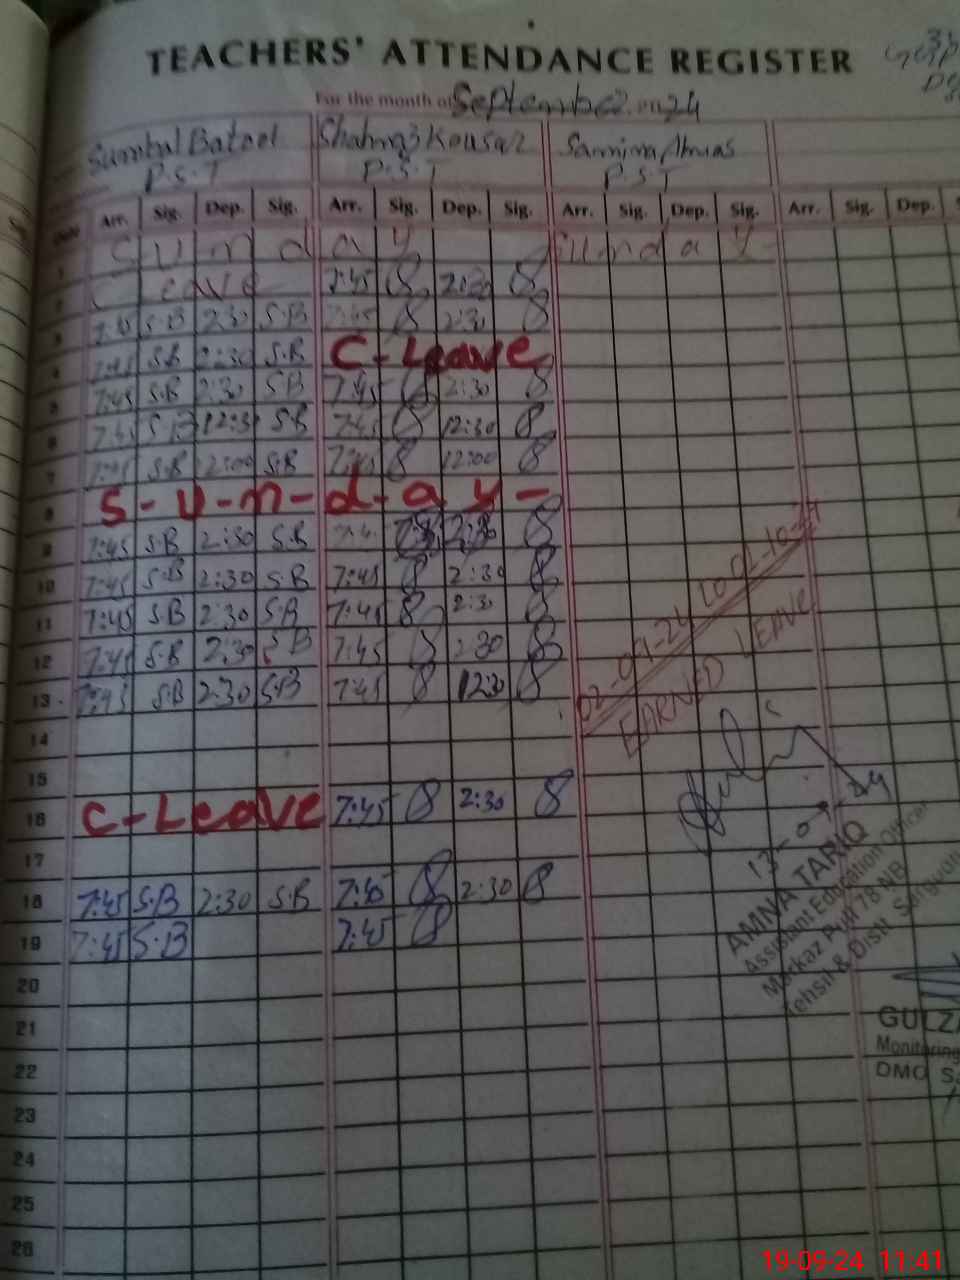 TEACHERS' ATTENDANCE REGISTER
For the month of September 2024
Sumbal Batool Shahnaz Kousar Samina
P.S.T P.S.T P.S.T
Date Arr. Sig. Dep. Sig. Arr. Sig. Dep. Sig. Arr. Sig. Dep. Sig. Arr. Sig. Dep.
1 S u n d a y Sunday
2 C Leave 7:45 8 2:30 8
3 7:45 S.B 2:30 S.B 7:45 8 2:30 8
4 7:45 S.B 2:30 S.B C-Leave
5 7:45 S.B 2:30 S.B 7:45 8 2:30 8
6 7:45 S.B 12:30 S.B 7:45 8 12:30 8
7 7:45 S.B 12:00 S.B 7:45 8 12:00 8
8 S-u-n-d-a-y-
9 7:45 S.B 2:30 S.B 2:30 8
10 7:45 S.B 2:30 S.B 7:45 8 2:30 8
11 7:45 S.B 2:30 S.B 7:45 8 2:30 8
12 7:45 S.B 2:30 S.B 7:45 8 2:30 8
13 7:45 S.B 2:30 S.B 7:45 8 12:30 8
14
15
16 C-Leave 7:45 8 2:30 8
17
18 7:45 S.B 2:30 S.B 7:45 8 2:30 8
19 7:45 S.B 7:45 8
20
21
22
23
24
25
26
02-09-24 to 02-10-24
EARNED LEAVE
13-09-24
AMNA TARIQ
Assistant Education Officer
Markaz 78 NB
Tehsil & Distt
Monitoring
DMO
19-09-24 11:41